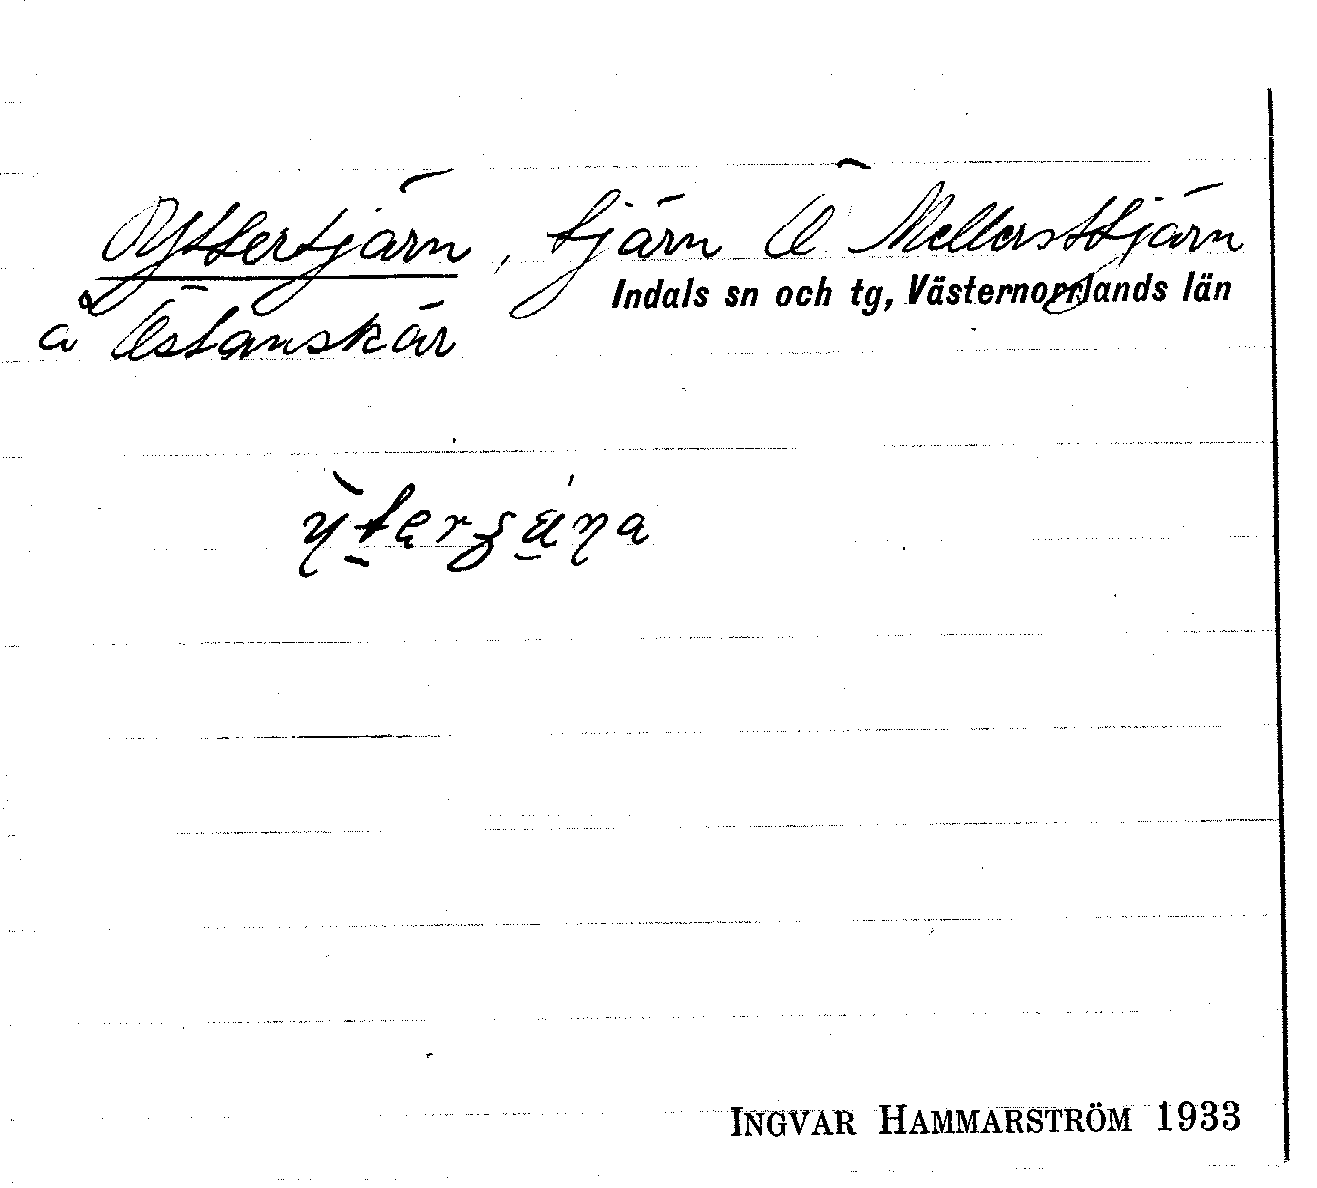 Yttertjärn, tjärn Ö Mellersttjärn
Indals sn och tg, Västernorrlands län
å Östanskär
INGVAR HAMMARSTRÖM 1933